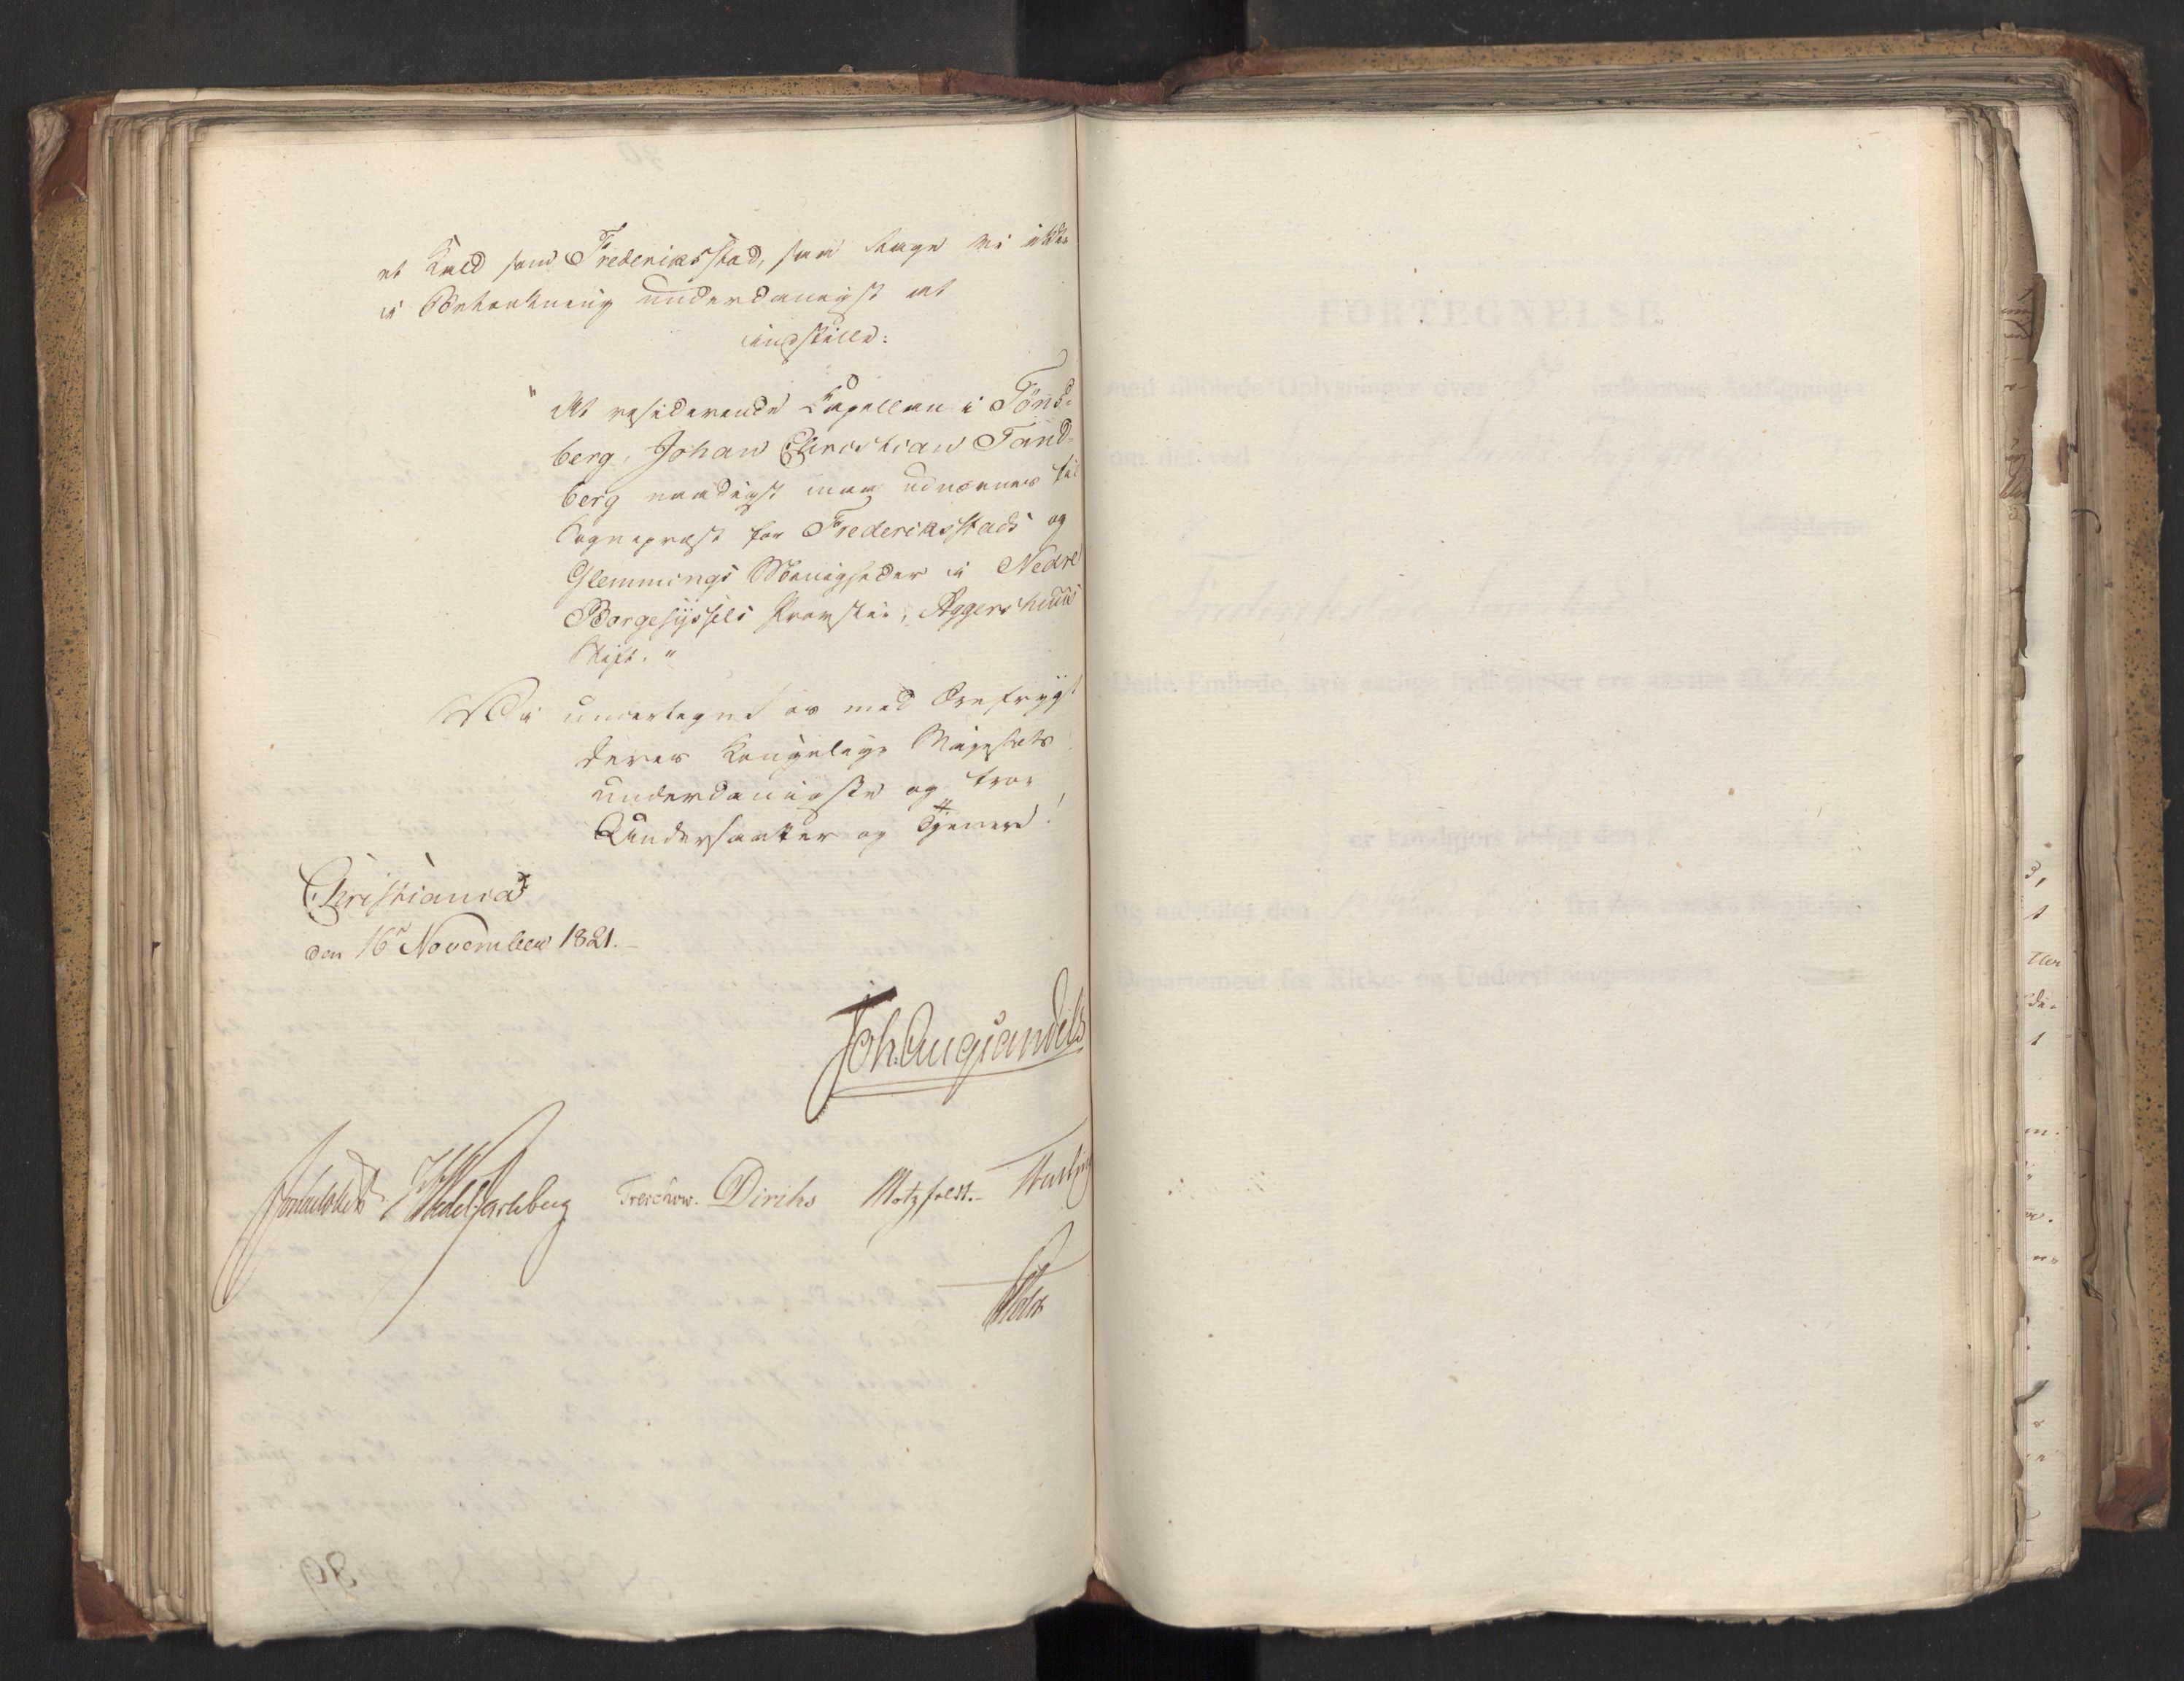 et Kald som Frederiksstad, saa tage vi ikke
i Betænkning underdanigst at
indstille:
"At residerende Capellan i Töns-
berg, Johan Christian Tand-
berg naadigst maa udnævnes til
Sognepræst for Frederiksstads og
Glemmings Menigheder i Nedre
Borgesyssels Provstie, Aggershuus
Stift."
Vi undertegne os med Ærefrygt
Deres Kongelige Majestæts
underdanigste og troe
Undersaatter og Tjenere!
Christiania
den 16de November 1821.
Joh. Aug. Sandels
Sommerhielm HWedelJarlsberg Treschow. Diriks Motzfeldt. Fasting
Holst